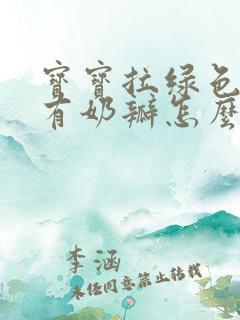 宝宝拉绿色
有奶瓣怎么
李涵
未经同意禁止转载